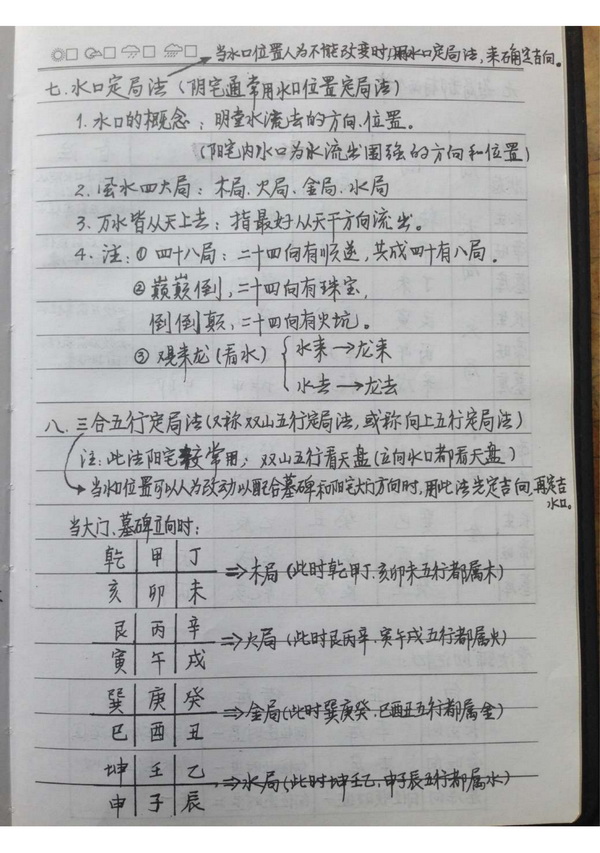 当水口位置人为不能改变时,用水口定局法,来确定吉向。
七.水口定局法(阴宅通常用水口位置定局法)
1.水口的概念:明堂水流去的方向、位置。
(阳宅内水口为水流出围强的方向和位置)
2.风水四大局:木局、火局、金局、水局
3.万水皆从天上去:指最好从天干方向流出。
4.注:①四十八局:二十四向有顺逆,共成四十有八局.
②巅巅倒,二十四向有珠宝,
倒倒颠,二十四向有火坑。
③观来龙(看水)
水来→龙来
水去→龙去
八.三合五行定局法(又称双山五行定局法,或称向上五行定局法)
注:此法阳宅较常用;双山五行看天盘(立向水口都看天盘)
当水口位置可以人为改动以配合墓碑和阳宅大门方向时,用此法先定吉向,再定吉
水口。
当大门、墓碑立向时:
乾 甲 丁
亥 卯 未
⇒木局(此时乾甲丁、亥卯未五行都属木)
艮 丙 辛
寅 午 戌
⇒火局(此时艮丙辛、寅午戌五行都属火)
巽 庚 癸
巳 酉 丑
⇒金局(此时巽庚癸、巳酉丑五行都属金)
坤 壬 乙
申 子 辰
⇒水局(此时坤壬乙、申子辰五行都属水)